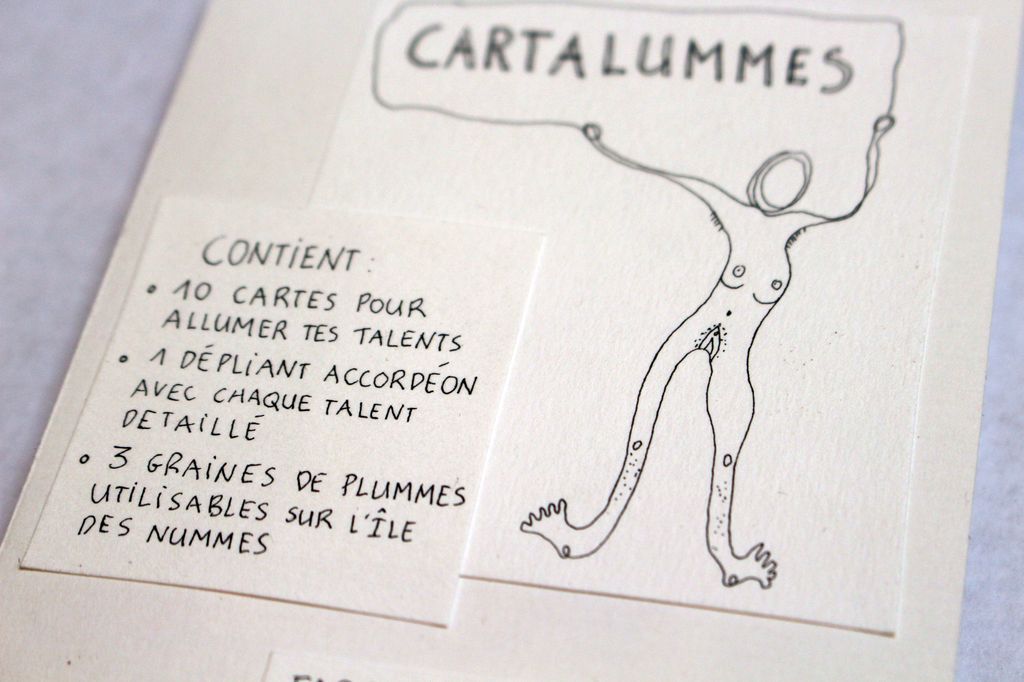 CARTALUMMES
CONTIENT :
• 10 CARTES POUR
ALLUMER TES TALENTS
• 1 DÉPLIANT ACCORDÉON
AVEC CHAQUE TALENT
DETAILLÉ
• 3 GRAINES DE PLUMMES
UTILISABLES SUR L'ÎLE
DES NUMMES